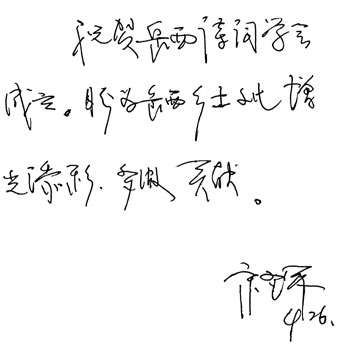 祝贺岳西诗词学会
成立。盼为岳西乡土文化增
光添彩、多做贡献。
4.26.